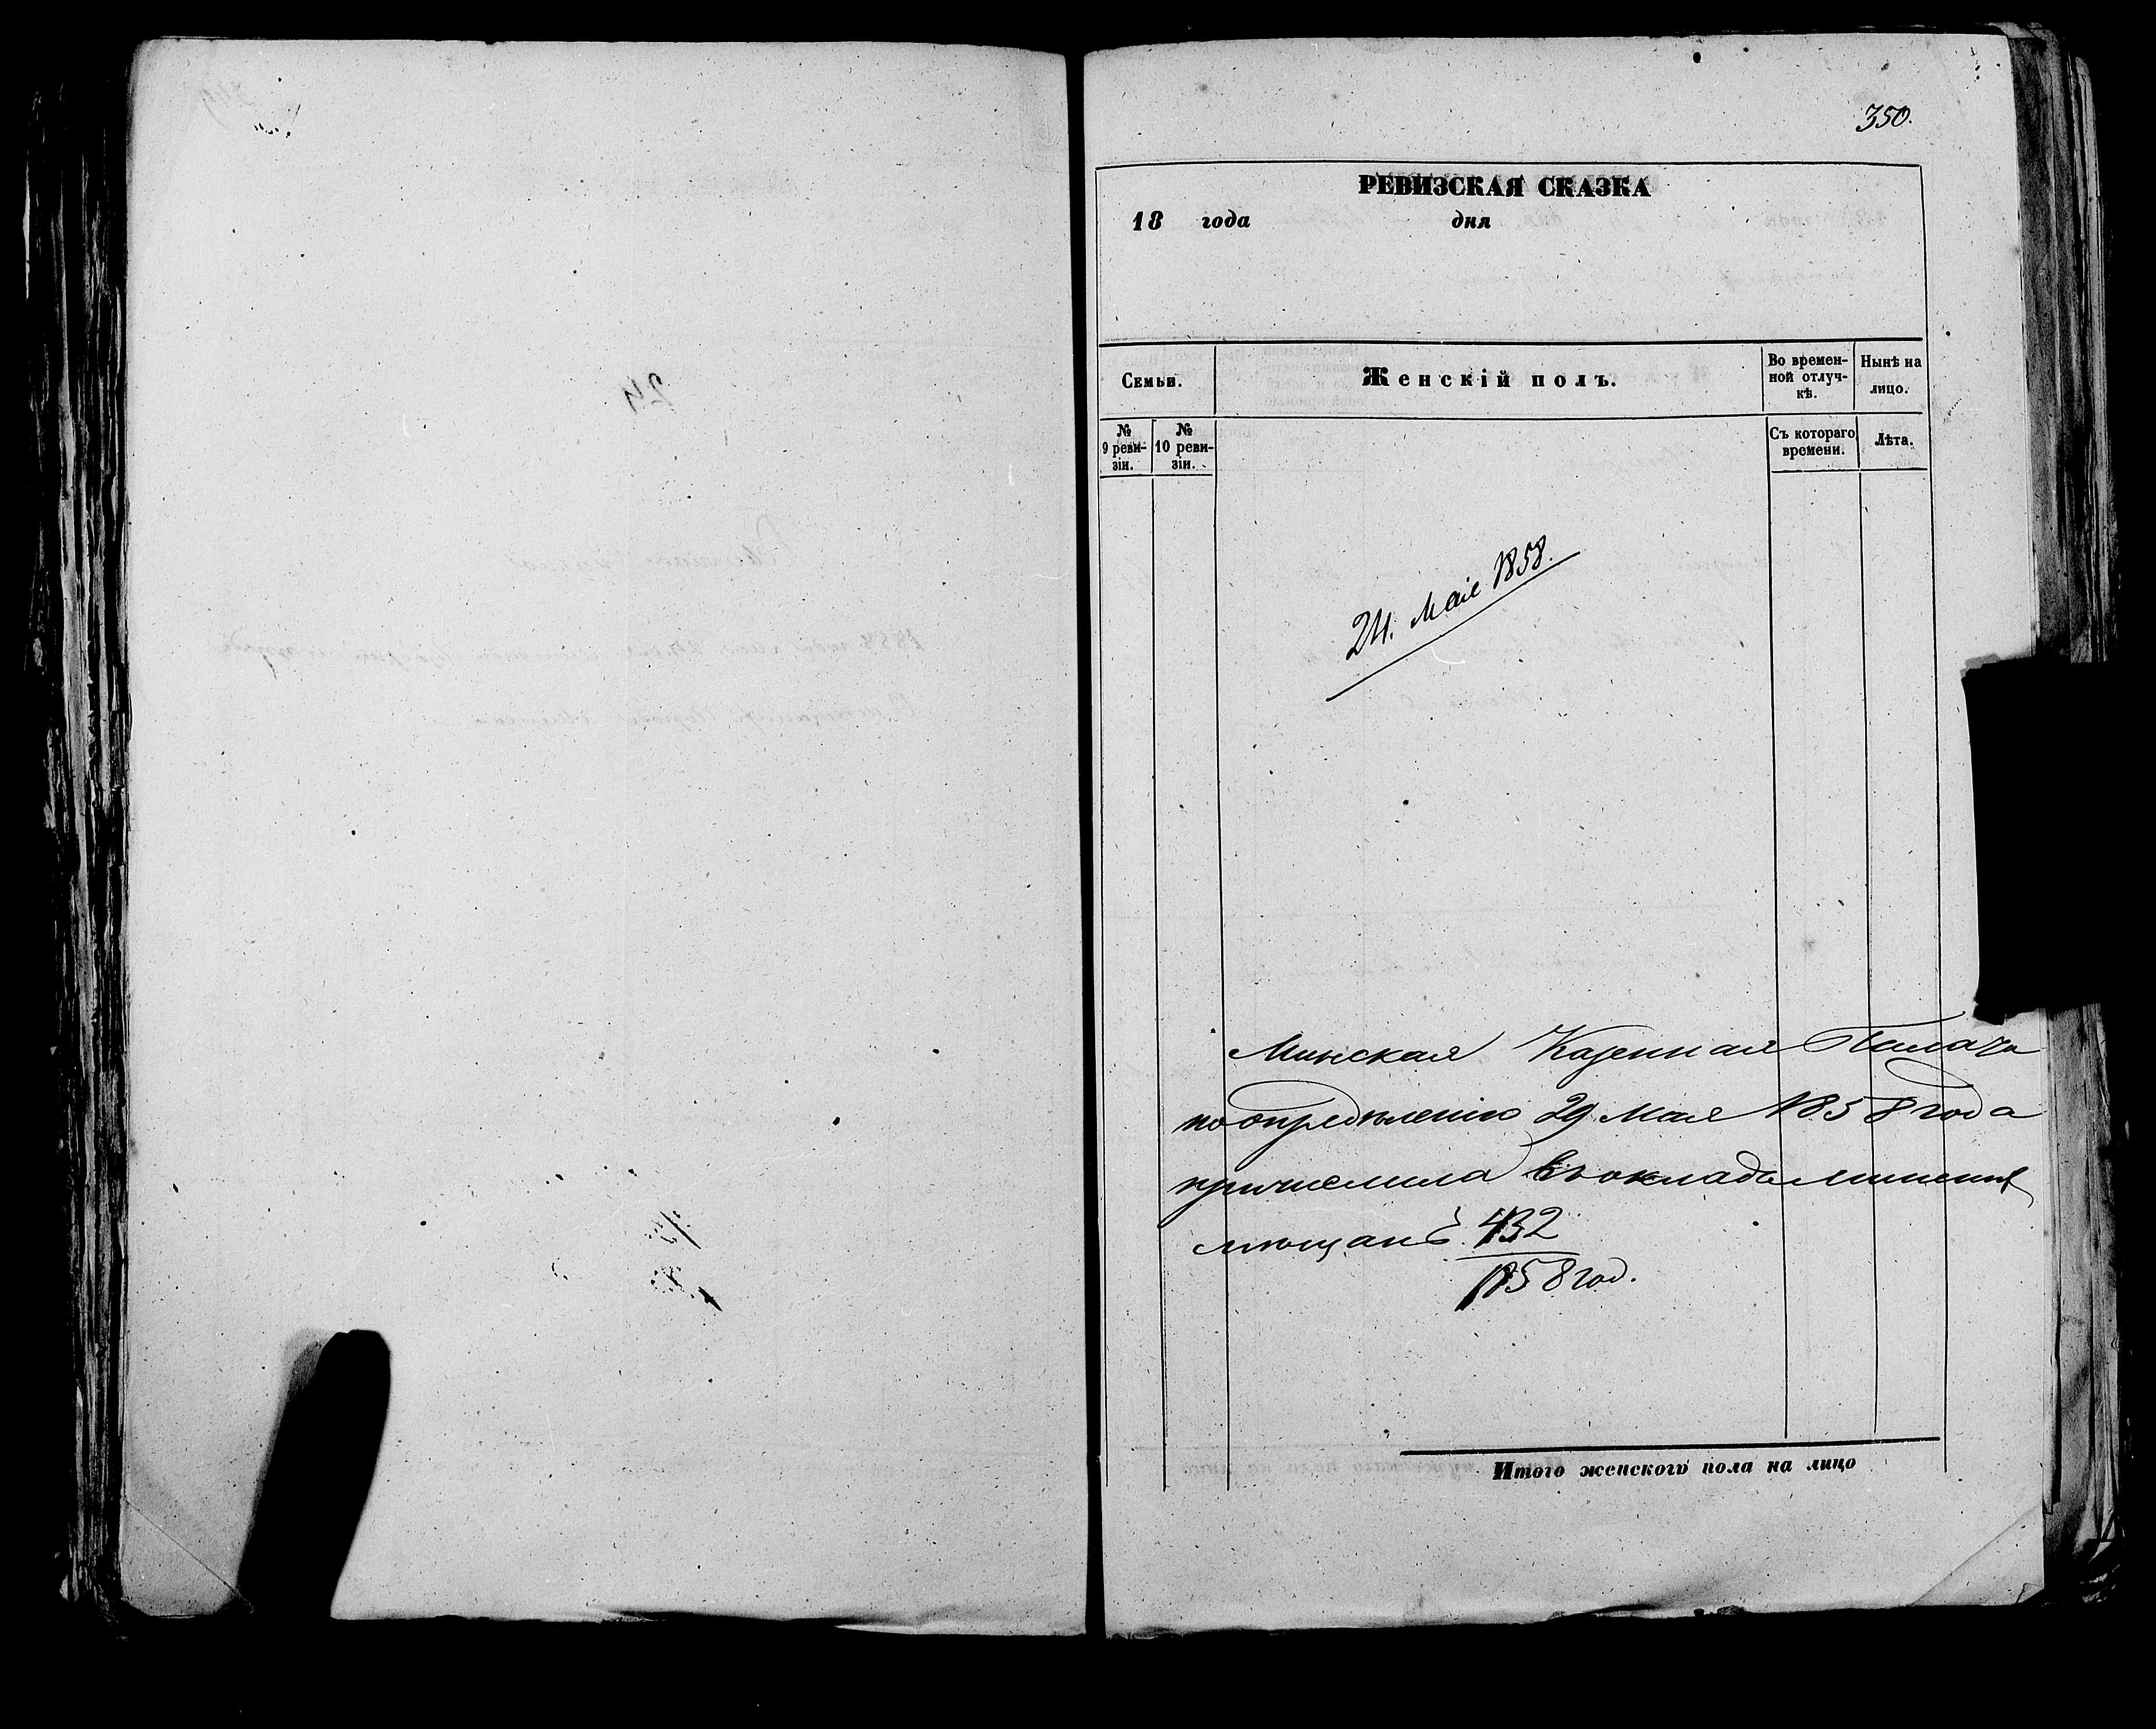 350.
РЕВИЗСКАЯ СКАЗКА
18 года дня
Семьи.
Женскій полъ.
Во времен-
ной отлуч-
кѣ.
Нынѣ на
лицо.
№
9 реви-
зіи.
№
10 реви-
зіи.
Съ котораго
времени.
Лѣта.
24. Мая 1858.
Минская Казенная Палата
по опредѣленію 29 Мая 1858 года
причислила въ окладъ
мѣщанъ. 432
1858 год.
Итого женскаго пола на лицо
24